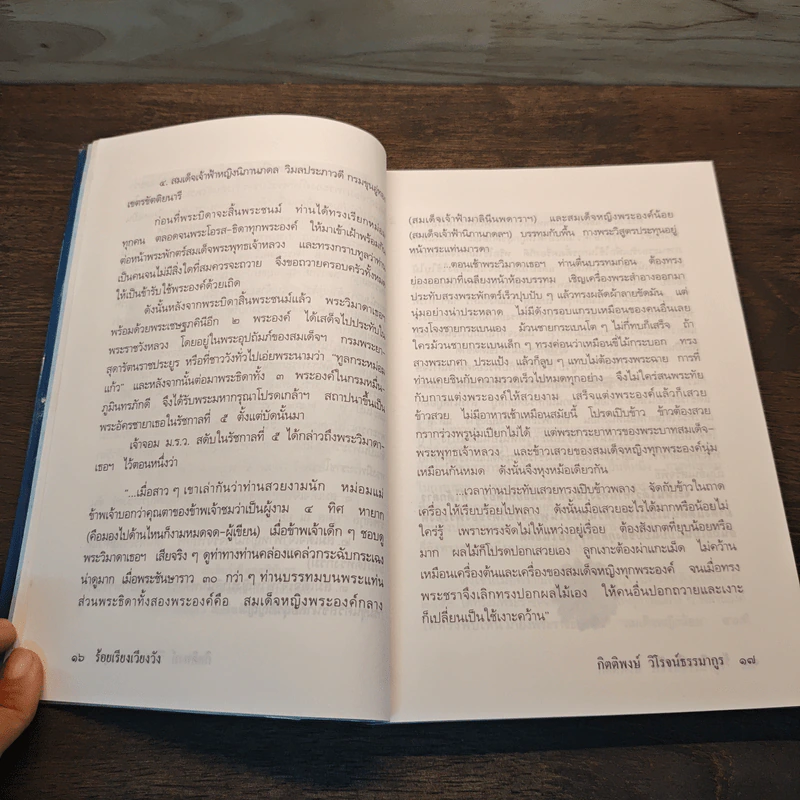 ๔. สมเด็จเจ้าฟ้าหญิงนิภานภดล วิมลประภาวดี กรมขุนอู่ทอง
เขตรขัตติยนารี
ก่อนที่พระบิดาจะสิ้นพระชนม์ ท่านได้ทรงเรียกหม่อม
ทุกคน ตลอดจนพระโอรส-ธิดาทุกพระองค์ ให้มาเข้าเฝ้าพร้อมกัน
ต่อหน้าพระพักตร์สมเด็จพระพุทธเจ้าหลวง และทรงกราบทูลว่าท่าน
เป็นคนจนไม่มีสิ่งใดที่สมควรจะถวาย จึงขอถวายครอบครัวทั้งหมด
ให้เป็นข้ารับใช้พระองค์ด้วยเถิด
ดังนั้นหลังจากพระบิดาสิ้นพระชนม์แล้ว พระวิมาดาเธอฯ
พร้อมด้วยพระเชษฐภคินีอีก ๒ พระองค์ ได้เสด็จไปประทับใน
พระราชวังหลวง โดยอยู่ในพระอุปถัมภ์ของสมเด็จฯ กรมพระยา-
สุดารัตนราชประยูร หรือที่ชาววังทั่วไปเอ่ยพระนามว่า "ทูลกระหม่อม
แก้ว" และหลังจากนั้นต่อมาพระธิดาทั้ง ๓ พระองค์ในกรมหมื่น-
ภูมินทรภักดี จึงได้รับพระมหากรุณาโปรดเกล้าฯ สถาปนาขึ้นเป็น
พระอัครชายาเธอในรัชกาลที่ ๕ ตั้งแต่บัดนั้นมา
เจ้าจอม ม.ร.ว. สดับในรัชกาลที่ ๕ ได้กล่าวถึงพระวิมาดา-
เธอฯ ไว้ตอนหนึ่งว่า
"...เมื่อสาว ๆ เขาเล่ากันว่าท่านสวยงามนัก หม่อมแม่
ข้าพเจ้าบอกว่าคุณตาของข้าพเจ้าชมว่าเป็นผู้งาม ๔ ทิศ หายาก
(คือมองไปด้านไหนก็งามหมดจด-ผู้เขียน) เมื่อข้าพเจ้าเด็ก ๆ ชอบดู
พระวิมาดาเธอฯ เสียจริง ๆ ดูท่าทางท่านคล่องแคล่วกระฉับกระเฉง
น่าดูมาก เมื่อพระชันษาราว ๓๐ กว่า ๆ ท่านบรรทมบนพระแท่น
ส่วนพระธิดาทั้งสองพระองค์คือ สมเด็จหญิงพระองค์กลาง
๑๖ ร้อยเรียงเวียงวัง
(สมเด็จเจ้าฟ้ามาลินีนพดาราฯ) และสมเด็จหญิงพระองค์น้อย
(สมเด็จเจ้าฟ้านิภานภดลฯ) บรรทมกับพื้น ทางพระวิสูตรประทุนอยู่
หน้าพระแท่นมารดา
...ตอนเช้าพระวิมาดาเธอฯ ท่านตื่นบรรทมก่อน ต้องทรง
ย่องออกมาที่เฉลียงหน้าห้องบรรทม เชิญเครื่องพระสำอางออกมา
ประทับสรงพระพักตร์เร็วปุบปับ ๆ แล้วทรงผลัดผ้าลายขัดมัน แต่
นุ่มอย่างน่าประหลาด ไม่มีดังกรอบแกรบเหมือนของคนอื่นเลย
ทรงโจงชายกระเบนเอง ม้วนชายกระเบนโต ๆ ไม่กี่ทบก็เสร็จ ถ้า
ใครม้วนชายกระเบนเล็ก ๆ ทรงค่อนว่าเหมือนขี้ไม้กระบอก ทรง
สางพระเกศา ประแป้ง แล้วก็ลูบ ๆ แทบไม่ต้องทรงพระฉาย การที่
ท่านเคยชินกับความรวดเร็วไปหมดทุกอย่าง จึงไม่ใคร่สนพระทัย
กับการแต่งพระองค์ให้สวยงาม เสร็จแต่งพระองค์แล้วก็เสวย
ข้าวสวย ไม่มีอาหารเช้าเหมือนสมัยนี้ โปรดเป็นข้าว ข้าวต้องสวย
กรากร่วงพรูนุ่มเปียกไม่ได้ แต่พระกระยาหารของพระบาทสมเด็จ-
พระพุทธเจ้าหลวง และข้าวเสวยของสมเด็จหญิงทุกพระองค์นุ่ม
เหมือนกันหมด ดังนั้นจึงหุงหม้อเดียวกัน
...เวลาท่านประทับเสวยทรงเปิบข้าวพลาง จัดกับข้าวในถาด
เครื่องให้เรียบร้อยไปพลาง ดังนั้นเมื่อสวยอะไรได้มากหรือน้อยไม่
ใคร่รู้ เพราะทรงจัดไม่ให้แหว่งอยู่เรื่อย ต้องสังเกตที่ยุบน้อยหรือ
มาก ผลไม้ก็โปรดปอกเสวยเอง ลูกเงาะต้องผ่าแกะเม็ด ไม่คว้าน
เหมือนเครื่องต้นและเครื่องของสมเด็จหญิงทุกพระองค์ จนเมื่อทรง
พระชราจึงเลิกทรงปอกผลไม้เอง ให้คนอื่นปอกถวายและเงาะ
ก็เปลี่ยนเป็นใช้เงาะคว้าน"
กิตติพงษ์ วิโรจน์ธรรมากูร ๑๗